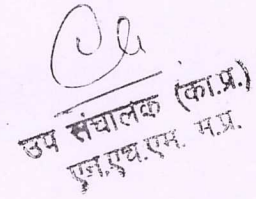 उप संचालक (का.प्र.)
एन.एच.एम. म.प्र.